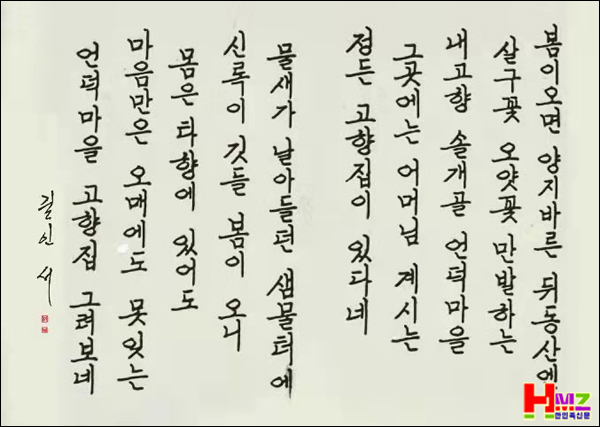 봄이오면 양지바른 뒤동산에
살구꽃 오얏꽃 만발하는
내고향 솔개골 언덕마을
그곳에는 어머님 계시는
정든 고향집이 있다네
물새가 날아들던 샘물터에
신록이 깃들 봄이 오니
몸은 타향에 있어도
마음만은 오매에도 못잊는
언덕마을 고향집 그려보네
길인 서
HMZ
한민족신문